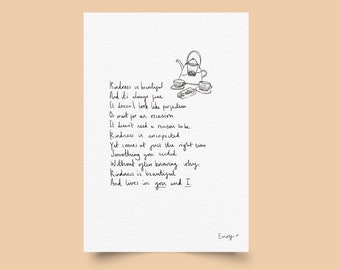 Kindness is beautiful
And it's always free
It doesn't look like perfection
Or wait for an occasion
It doesn't need a reason to be
Kindness is unexpected
Yet comes at just the right time
Something you needed
Without often knowing why.
Kindness is beautiful
And lives in you and I.